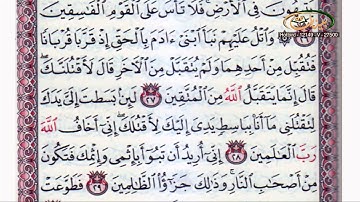 يتيهون فى الأرض فلا تأس على القوم الفسقين
﴿٢٦﴾ واتل عليهم نبأ ابنى ءادم بالحق إذ قربا قربانا
فتقبل من أحدهما ولم يتقبل من الأخر قال لأقتلنك
قال إنما يتقبل الله من المتقين ﴿٢٧﴾ لئن بسطت إلى يدك
لتقتلنى ما أنا بباسط يدى إليك لأقتلك إنى أخاف الله
رب العلمين ﴿٢٨﴾ إنى أريد أن تبوأ بإثمى وإثمك فتكون
من أصحب النار وذلك جزؤا الظلمين ﴿٢٩﴾ فطوعت
12149 - V - 27500